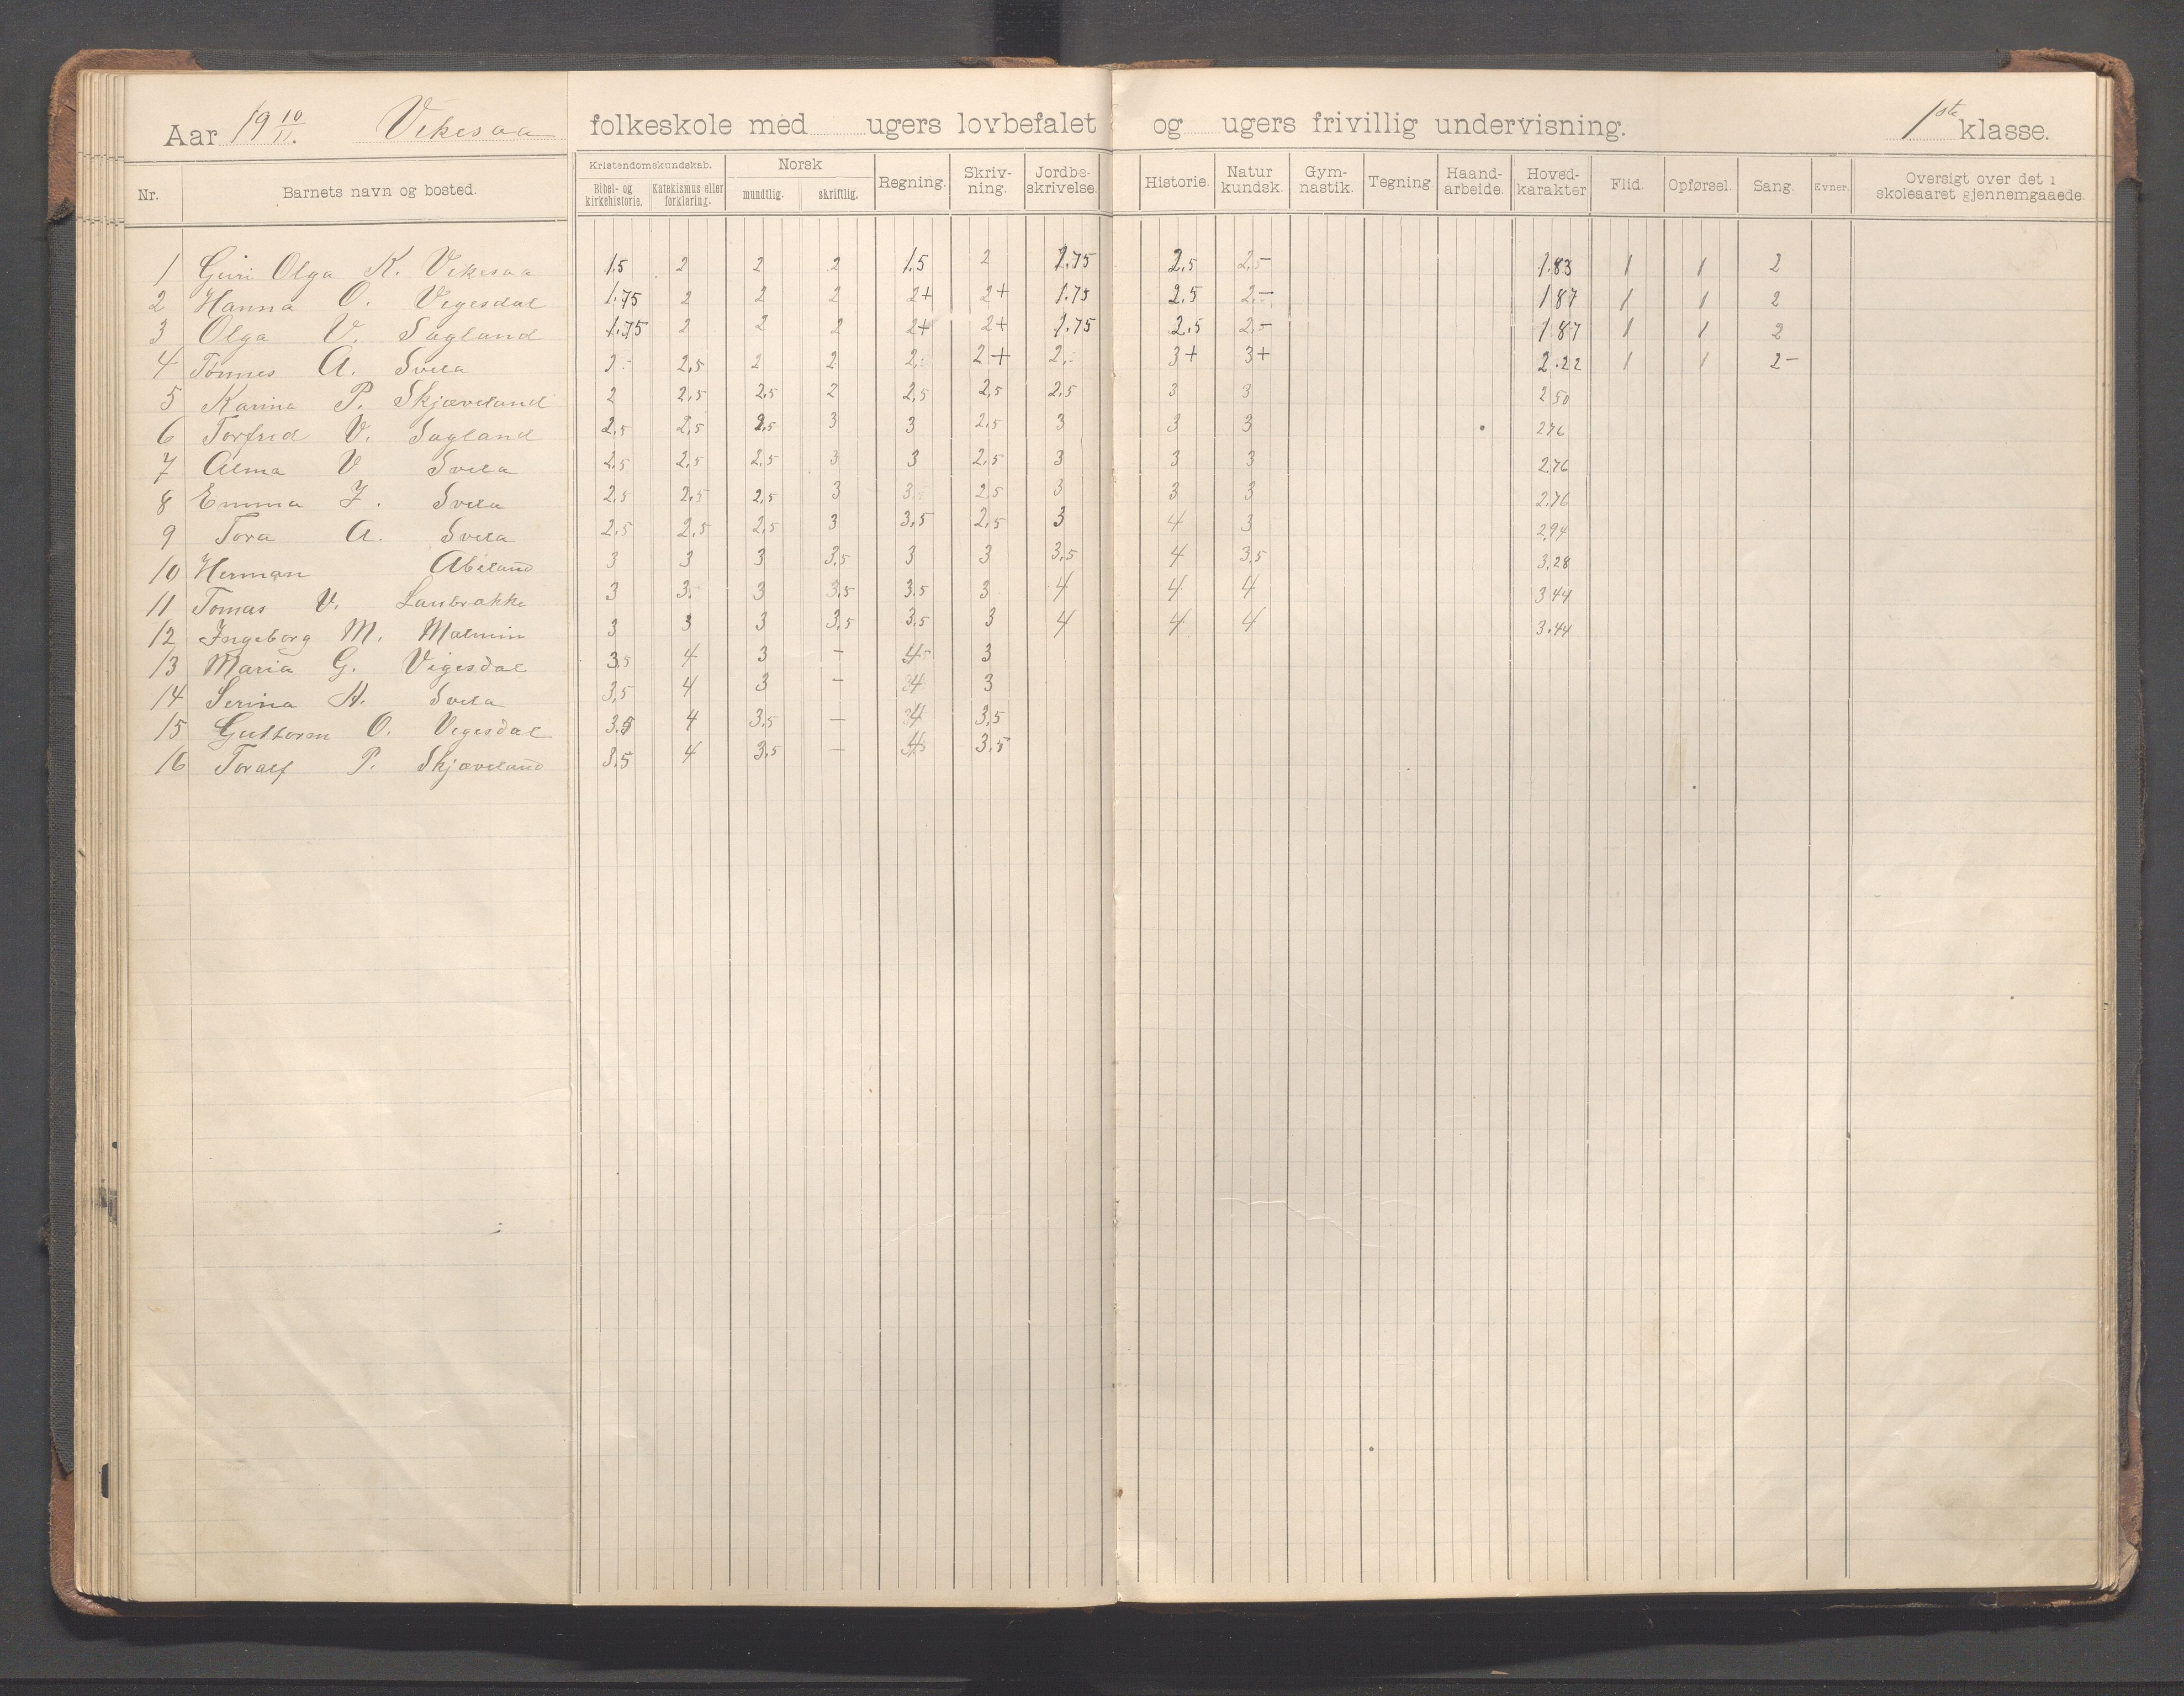 Aar 19 10/11. Vikesaa folkeskole med ugers lovbefalet og ugers frivillig undervisning. 1ste klasse.
Nr. Barnets navn og bosted. Kristendomskundskab. Bibel- og kirkehistorie. Katekismus eller forklaring. Norsk mundtlig. skriftlig. Regning. Skriv-ning. Jordbe-skrivelse. Historie. Natur kundsk. Gym-nastik. Tegning Haand-arbeide. Hoved-karakter Flid. Opførsel. Sang. Evner. Oversigt over det i skoleaaret gjennemgaaede.
1 Guri Olga K. Vikesaa 1.5 2 2 2 1.5 2 1.75 2.5 2,5- 1.83 1 1 2
2 Hanna O. Vegesdal 1.75 2 2 2 2+ 2+ 1.75 2.5 2.- 1 87 1 1 2
3 Olga V. Sagland 1.75 2 2 2 2+ 2+ 1.75 2.5 2.- 1 87 1 1 2
4 Tønnes A. Svela 2,5 2 2 2+ 3+ 3+ 2.22 1 1 2-
5 Karina P. Skjæveland 2 2,5 2,5 2 2,5 2,5 2,5 3 3 2 50
6 Torfrid V. Sagland 2,5 2,5 2,5 3 3 2,5 3 3 3 2.76
7 Alma V Svela 2,5 2,5 2,5 3 3 2,5 3 3 3 2.76
8 Emma J. Svela 2,5 2,5 2,5 3 3 2,5 3 3 3 2.76
9 Tora A. Svela 2,5 2,5 2,5 3 3,5 2,5 3 4 3 2.94
10 Herman Abeland 3 3 3 3,5 3 3 3,5 4 3,5 3.28
11 Tomas V. Lanbrakke 3 3 3 3,5 3.5 3 4 4 4 3 44
12 Ingeborg M. Malmin 3 3 3 3,5 3,5 3 4 4 4 3.44
13 Maria G. Vigesdal 3,5 4 3 - 4 3
14 Serina H. Svela 3,5 4 3 - 4 3
15 Guttorm O. Vegesdal 3.5 4 3,5 - 4 3,5
16 Toralf P. Skjæveland 3,5 4 3,5 - 4 3,5